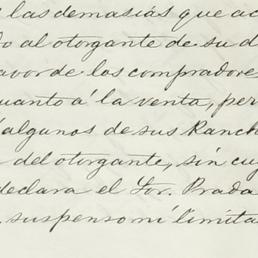 las demasías que ac
do al otorgante de su d
avor de los compradore
uanto á la venta, per
algunos de sus Ranch
del otorgante, sin cu
declara el Sor. Prada
suspenso ni limita